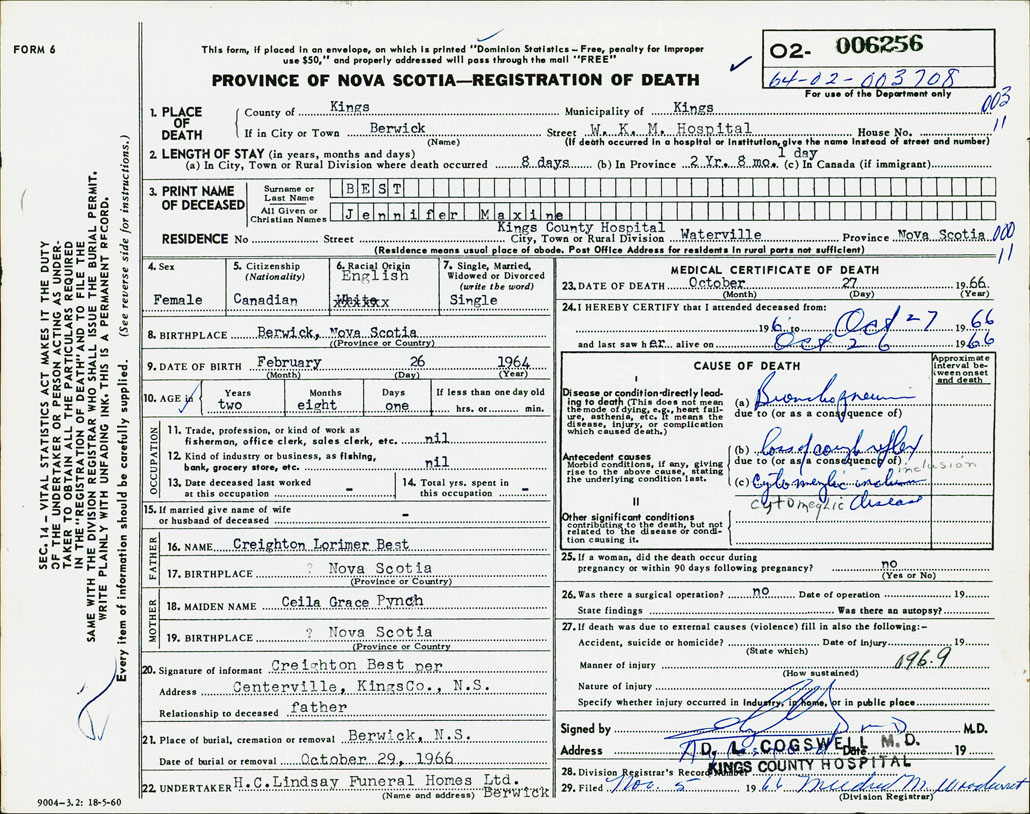 FORM 6
This form, if placed in an envelope, on which is printed "Dominion Statistics – Free, penalty for improper
use $50," and properly addressed will pass through the mail "FREE"
PROVINCE OF NOVA SCOTIA—REGISTRATION OF DEATH
O2- 006256
64-02-003708
For use of the Department only
003
11
1. PLACE OF DEATH
County of Kings Municipality of Kings
If in City or Town Berwick Street W. K. M. Hospital House No.
(Name) (If death occurred in a hospital or institution, give the name instead of street and number)
2. LENGTH OF STAY (in years, months and days) 1 day
(a) In City, Town or Rural Division where death occurred 8 days (b) In Province 2 Yr. 8 mo. (c) In Canada (if immigrant)
3. PRINT NAME OF DECEASED
Surname or Last Name BEST
All Given or Christian Names Jennifer Maxine
Kings County Hospital
RESIDENCE No Street City, Town or Rural Division Waterville Province Nova Scotia
000
11
(Residence means usual place of abode. Post Office Address for residents in rural parts not sufficient)
4. Sex
Female
5. Citizenship
(Nationality)
Canadian
6. Racial Origin
English
7. Single, Married,
Widowed or Divorced
(write the word)
Single
8. BIRTHPLACE Berwick, Nova Scotia
(Province or Country)
9. DATE OF BIRTH February 26 1964
(Month) (Day) (Year)
10. AGE in
Years Months Days If less than one day old
two eight one hrs. or min.
OCCUPATION
11. Trade, profession, or kind of work as
fisherman, office clerk, sales clerk, etc. nil
12. Kind of industry or business, as fishing,
bank, grocery store, etc. nil
13. Date deceased last worked
at this occupation -
14. Total yrs. spent in
this occupation -
15. If married give name of wife
or husband of deceased -
FATHER
16. NAME Creighton Lorimer Best
17. BIRTHPLACE ? Nova Scotia
(Province or Country)
MOTHER
18. MAIDEN NAME Ceila Grace Pynch
19. BIRTHPLACE ? Nova Scotia
(Province or Country
20. Signature of informant Creighton Best per
Address Centerville, KingsCo., N.S.
Relationship to deceased father
21. Place of burial, cremation or removal Berwick, N.S.
Date of burial or removal October 29, 1966
22. UNDERTAKER H.C.Lindsay Funeral Homes Ltd.
(Name and address) Berwick
MEDICAL CERTIFICATE OF DEATH
23. DATE OF DEATH October 27 1966
(Month) (Day) (Year)
24. I HEREBY CERTIFY that I attended deceased from:
196 to Oct 27 1966
and last saw her alive on Oct 26 1966
CAUSE OF DEATH
Approximate interval between onset and death
I
Disease or condition directly leading to death (This does not mean the mode of dying, e.g., heart failure, asthenia, etc. It means the disease, injury, or complication which caused death.)
(a) Bronchopneumonia
due to (or as a consequence of)
Antecedent causes
Morbid conditions, if any, giving rise to the above cause, stating the underlying condition last.
(b) loss of cough reflex
due to (or as a consequence of)
inclusion
(c) Cytomeglic inclusion
cytomeglic disease
II
Other significant conditions
contributing to the death, but not related to the disease or condition causing it.
25. If a woman, did the death occur during
pregnancy or within 90 days following pregnancy? no
(Yes or No)
26. Was there a surgical operation? no Date of operation 19
State findings Was there an autopsy?
27. If death was due to external causes (violence) fill in also the following:–
Accident, suicide or homicide? Date of injury 19
(State which)
Manner of injury 096.9
(How sustained)
Nature of injury
Specify whether injury occurred in Industry, in home, or in public place
Signed by M.D.
Address Date 19
D. L. COGSWELL M.D.
KINGS COUNTY HOSPITAL
28. Division Registrar's Record Number
29. Filed Nov. 5 1966
(Division Registrar)
SEC. 14 – VITAL STATISTICS ACT MAKES IT THE DUTY
OF THE UNDERTAKER OR PERSON ACTING AS UNDERTAKER TO OBTAIN ALL THE PARTICULARS REQUIRED
IN THE "REGISTRATION OF DEATH" AND TO FILE THE
SAME WITH THE DIVISION REGISTRAR WHO SHALL ISSUE THE BURIAL PERMIT.
WRITE PLAINLY WITH UNFADING INK. THIS IS A PERMANENT RECORD.
Every item of information should be carefully supplied. (See reverse side for instructions.)
9004–3.2: 18-5-60